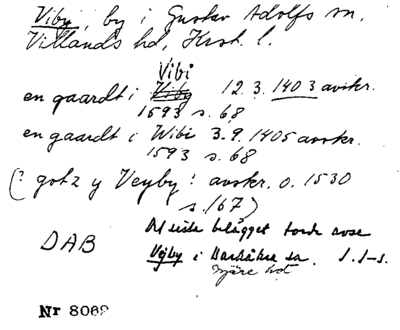 Viby, by i Gustav Adolfs sn,
Villands hd, Krist. l.
Vibi
en gaardt i Viby 12.3. 1403 avskr.
1593 s. 68
en gaardt i Wibi 3.9. 1405 avskr.
1593 s. 68
(? gotz y Veyby : avskr. o. 1530
s. 167)
Det sista belägget torde avse
DAB
Vejby i Barkåkra sn. I. I-s.
Bjäre hd
Nr 8062